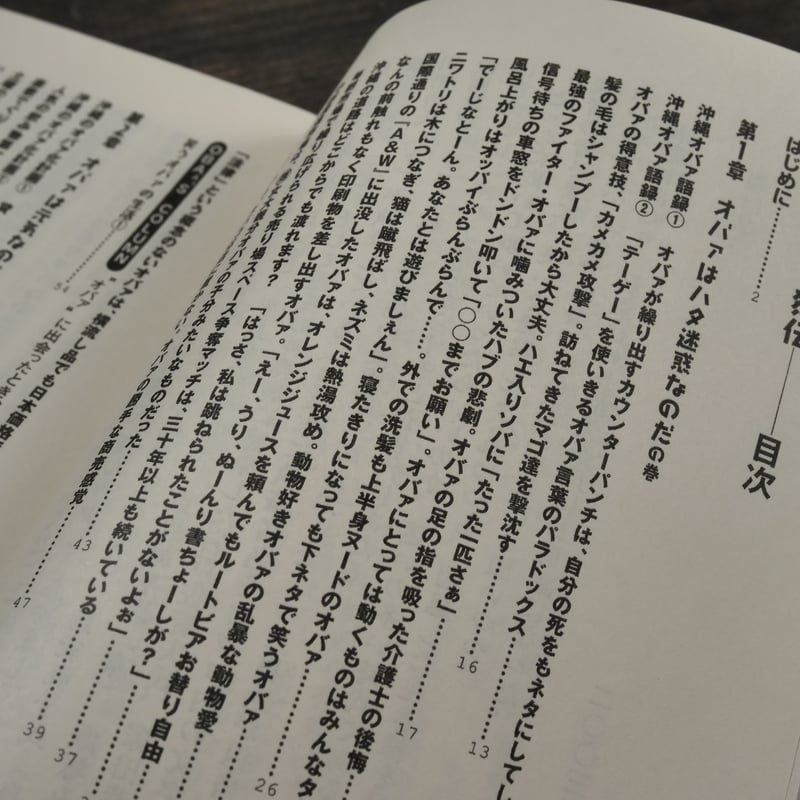 列伝――目次
はじめに………2
第1章 オバァはハタ迷惑なのだの巻
沖縄オバァ語録① オバァが繰り出すカウンターパンチは、自分の死をもネタにしてし
沖縄オバァ語録② 「テーゲー」を使いきるオバァ言葉のパラドックス………13
オバァの得意技、「カメカメ攻撃」。訪ねてきたマゴ達を撃沈す………16
髪の毛はシャンプーしたから大丈夫。ハエ入りソバに「たった一匹さぁ」
最強のファイター・オバァに噛みついたハブの悲劇。オバァの足の指を吸った介護士の後悔………17
信号待ちの車窓をドンドン叩いて「○○までお願い」。オバァにとっては動くものはみんなタ
風呂上がりはオッパイぶらんぶらんで……。外での洗髪も上半身ヌードのオバァ
「でーじなとーん。あなたとは遊びましぇん」。寝たきりになっても下ネタで笑うオバァ………26
ニワトリは木につなぎ、猫は蹴飛ばし、ネズミは熱湯攻め。動物好きオバァの乱暴な動物愛
国際通りの「A&W」に出没したオバァは、オレンジジュースを頼んでもルートビアお替り自由
なんの前触れもなく印刷物を差し出すオバァ。「えー、うり、ぬーんり書ちょーしが？」
沖縄の道路はどこからでも渡れます？ 「はっさ、私は跳ねられたことがないよぉ」………37
スペース争奪マッチは、三十年以上も続いている………39
オバァの勝手な商売感覚………43
という概念のないオバァは、横流し品でも日本価格
OBA'S COLUMN
笑うオバァの生活①
"オバァ"に出会ったとき
47
54
第2章 オバァは元気なの